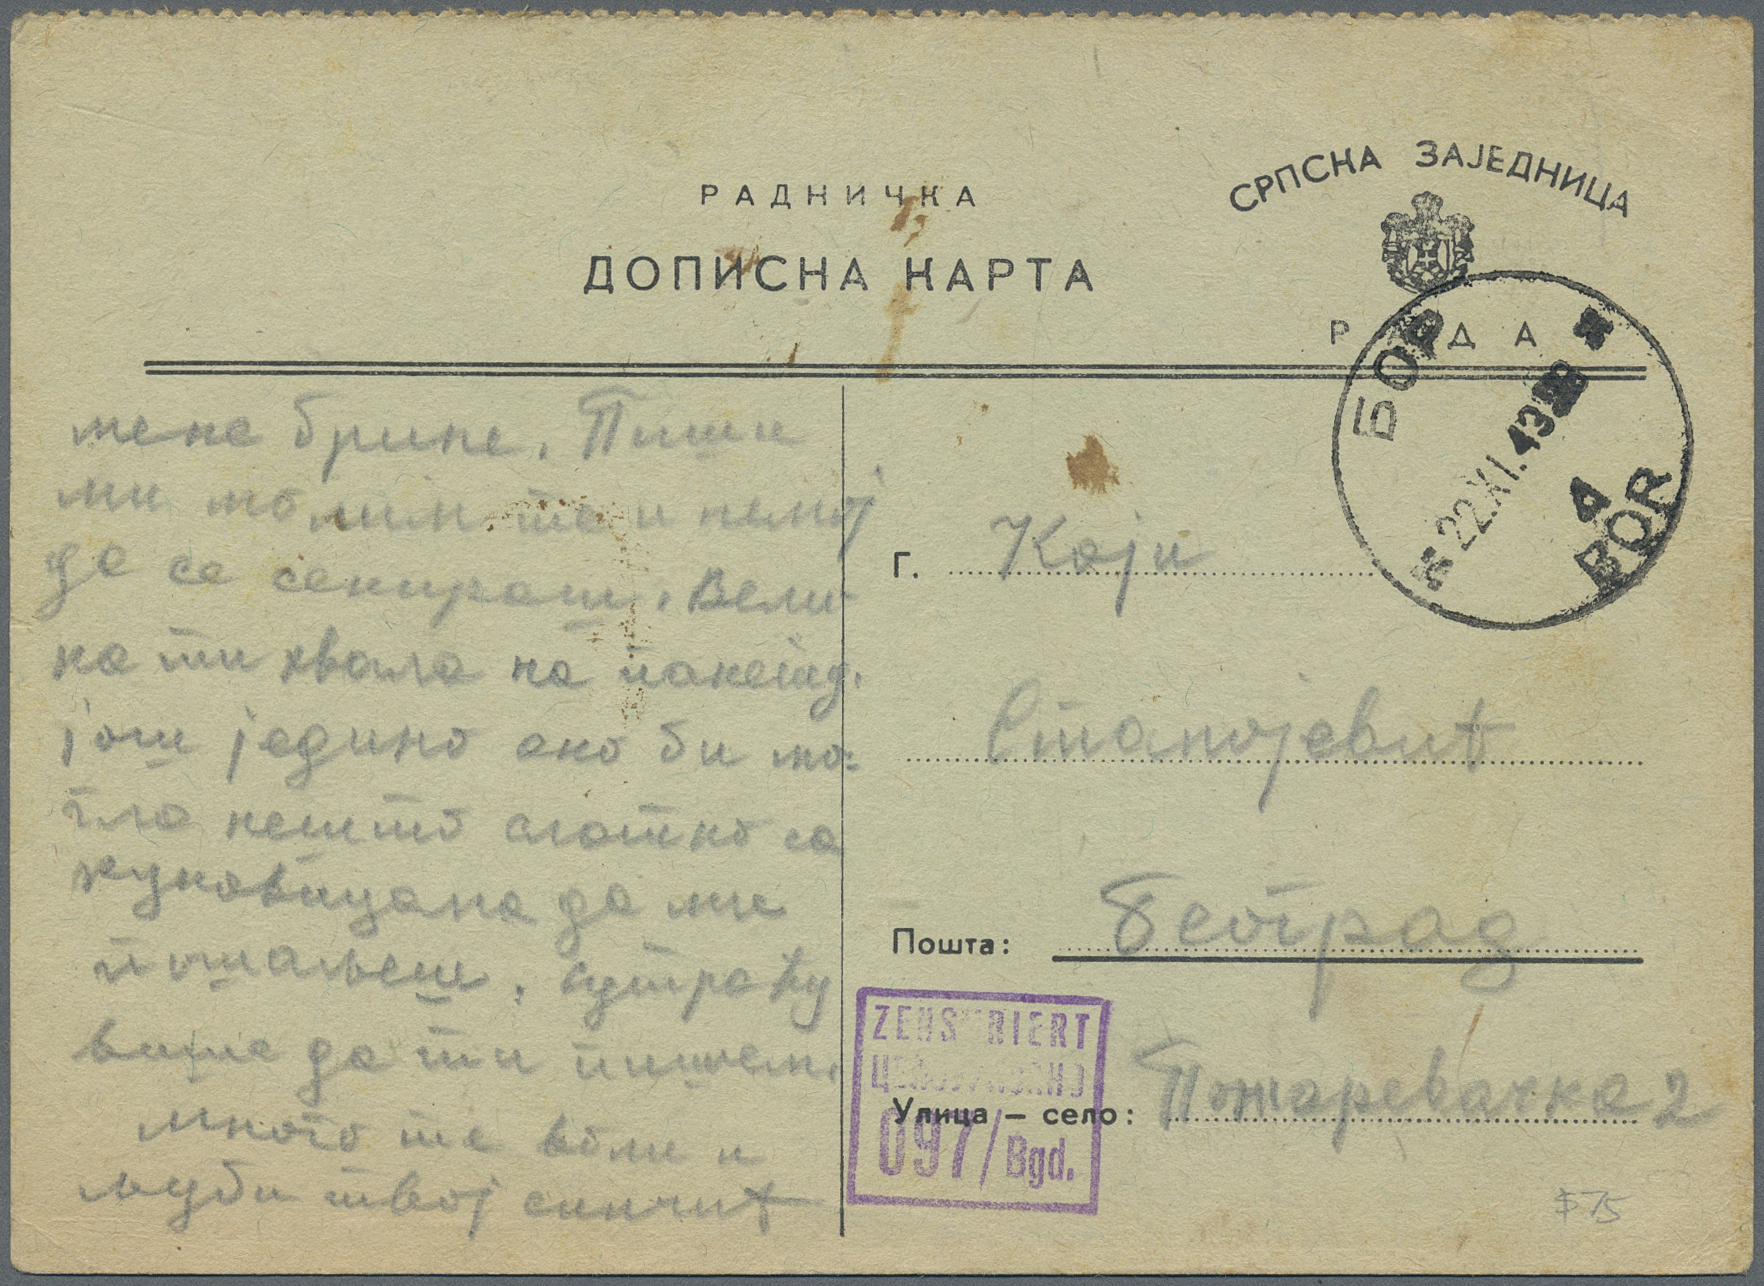 РАДНИЧКА
ДОПИСНА КАРТА
СРПСКА ЗАЈЕДНИЦА
РАДА
БОР
22.XI.43
4
BOR
мене брине. Пиши
ми молим те и немој
да се секираш. Вели-
ка ти хвала на пакету.
још једино ако би мо-
гла нешто слатко са
куповицама да ми
пошаљеш. сутра ћу
више да ти пишем.
много те воли и
љуби твој синчић
Г. Каји
Станојевић
Пошта: Београд
Улица — село: Пожаревачка 2
ZENSURIERT
ЦЕНЗУРИСАНО
097/Bgd.
$75